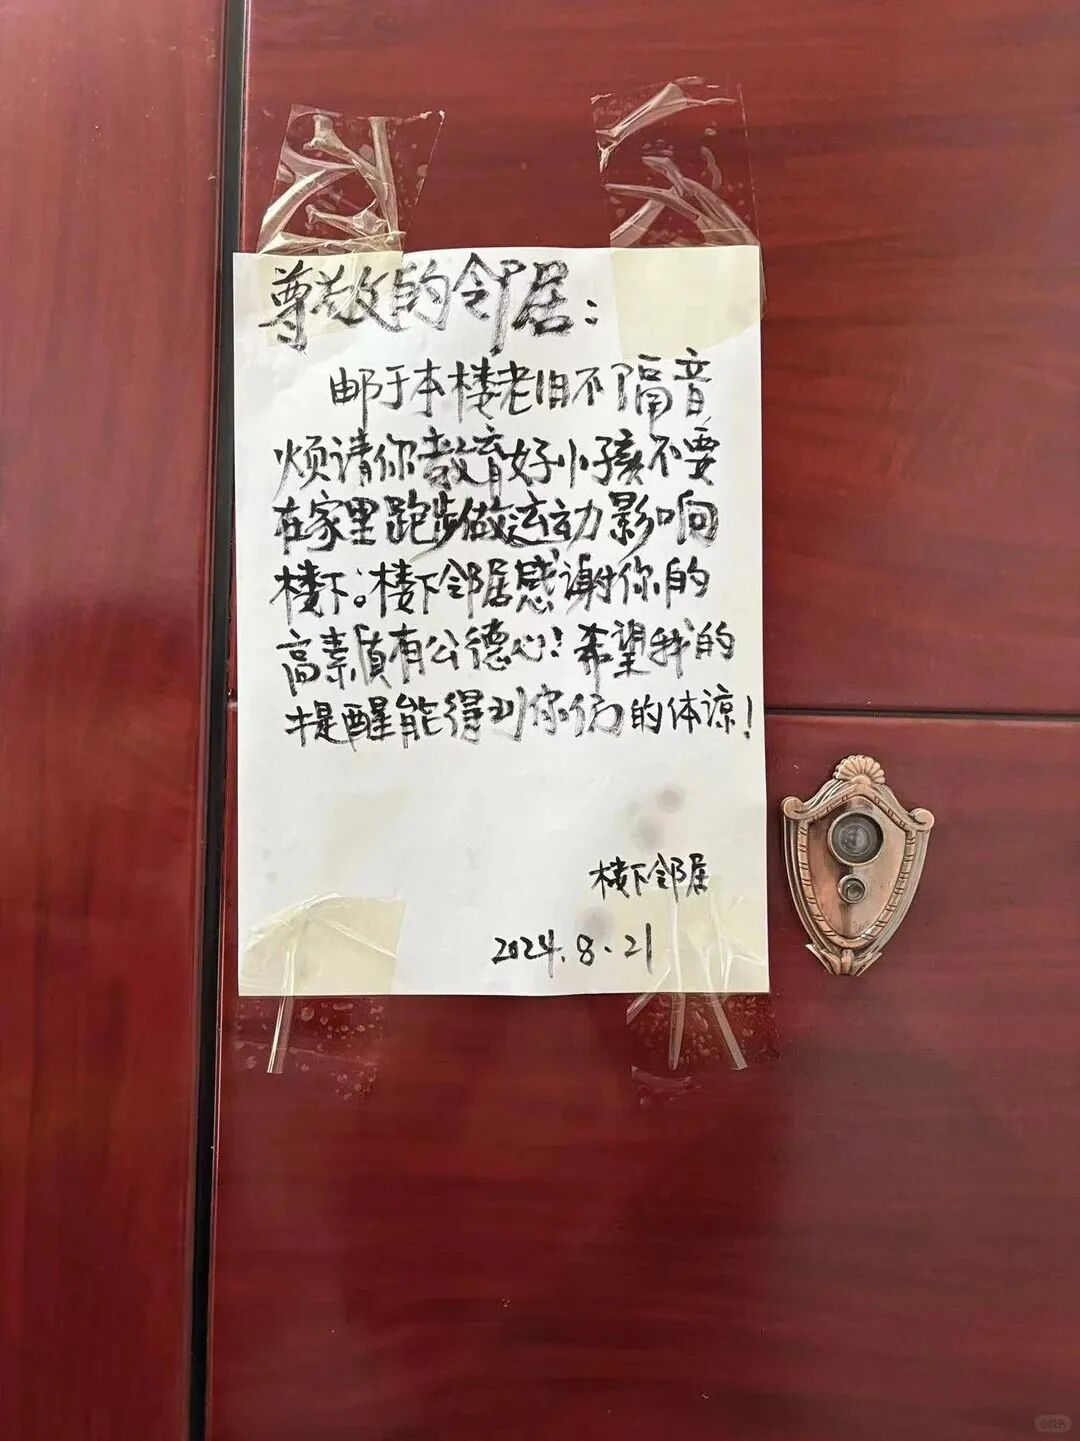 尊敬的邻居：
邮于本楼老旧不隔音
烦请你教育好小孩不要
在家里跑步做运动影响
楼下。楼下邻居感谢你的
高素质有公德心！希望我的
提醒能得到你们的体谅！
楼下邻居
2024.8.21
小红书